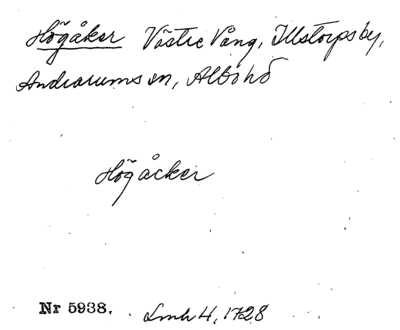 Högåker Västre Vång, Illstorps by,
Andrarums sn, Albo hd
Högåcker
Nr 5938. Lmh 4, 1728